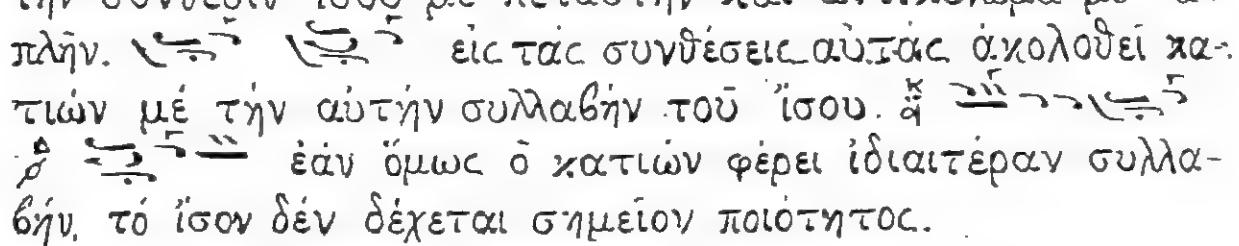 πλῆν. εἰς τάς συνθέσεις αὐτάς ἀκολοθεῖ κα-
τιών μέ τήν αὐτήν συλλαβήν τοῦ ἴσου.
ἐάν ὅμως ὁ κατιών φέρει ἰδιαιτέραν συλλα-
βήν, τό ἴσον δέν δέχεται σημεῖον ποιότητος.